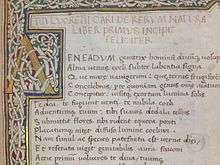 TITI LVCRETII CARI DE RERVM NATVRA
LIBER PRIMVS INCIPIT
FELICITER
AENEADVM genetrix hominum diuumq uoluptas
Alma uenus: coeli subter labentia signa
Quae mare nauigerum: quae terras frugiferentis
Concelebras: per quoniam genus omne animantum
Concipitur: uisitq exortum lumina solis
Te dea te fugiunt uenti te nubila coeli
Aduentumq tuum: tibi suauis daedala tellus
Submittit flores tibi rident aequora ponti
Placatumq nitet diffuso lumine coelum
Nam simul ac species patefacta est uerna diei
Et reserata uiget genitabilis aura fauoni
Aeriae primum uolucres te diua tuumq